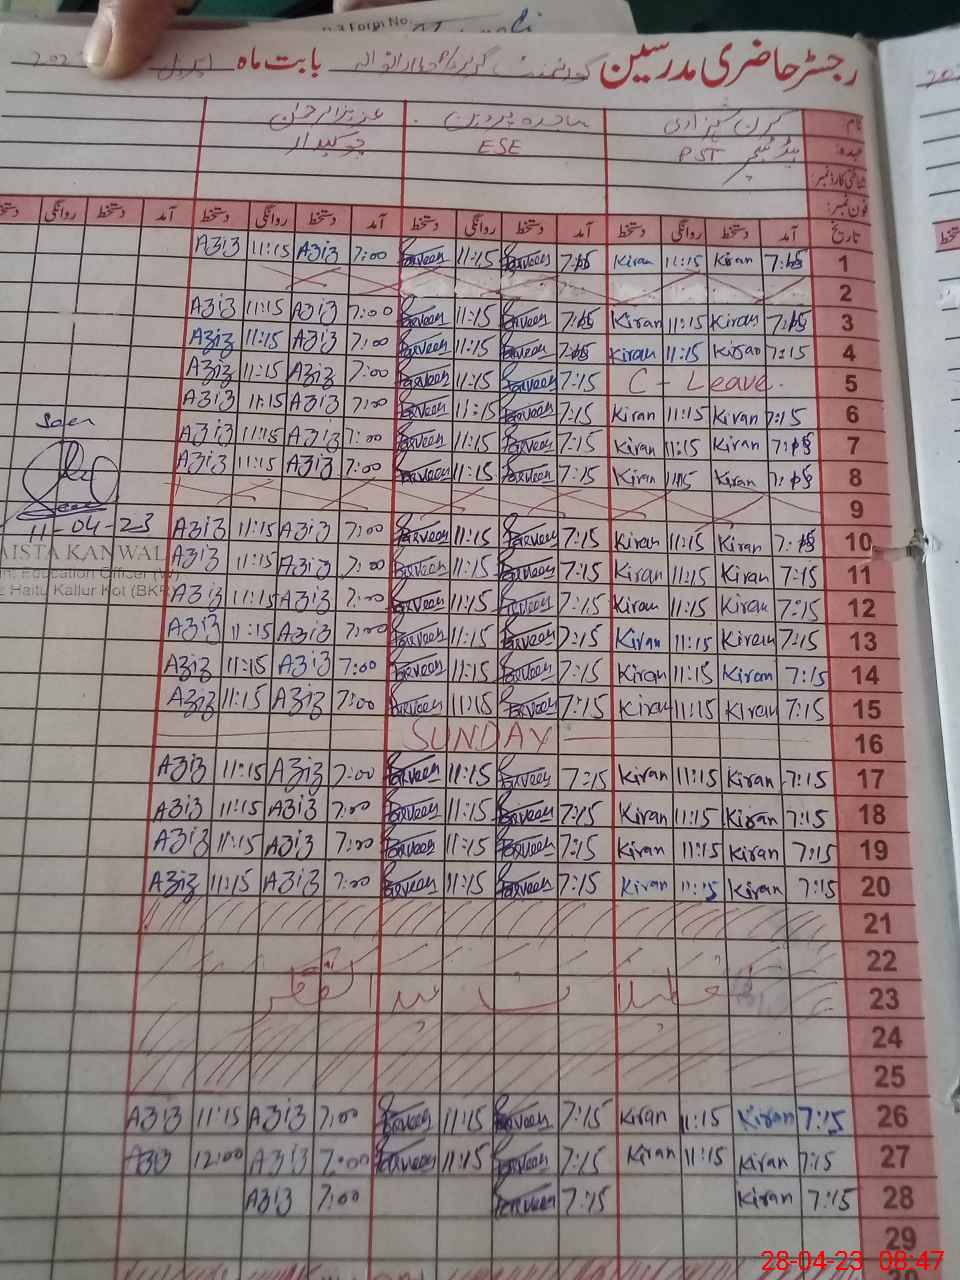 رجسٹر حاضری مدرسین گورنمنٹ گرلز بابت ماہ اپریل 202
نام کرن شہزادی ساجدہ پروین عزیزالرحمٰن
عہدہ: ہیڈ ٹیچر PST ESE چوکیدار
شناختی کارڈ نمبر:
فون نمبر:
تاریخ آمد دستخط روانگی دستخط آمد دستخط روانگی دستخط آمد دستخط روانگی دستخط آمد دستخط روانگی دستخط
A3i3 11:15 A3i3 7:00 Parveen 11:15 Parveen 7:15 Kiran 11:15 Kiran 7:15 1
2
A3i3 11:15 A3i3 7:00 Parveen 11:15 Parveen 7:15 Kiran 11:15 Kiran 7:15 3
A3i3 11:15 A3i3 7:00 Parveen 11:15 Parveen 7:15 Kiran 11:15 Kiran 7:15 4
A3i3 11:15 A3i3 7:00 Parveen 11:15 Parveen 7:15 C - Leave. 5
A3i3 11:15 A3i3 7:00 Parveen 11:15 Parveen 7:15 Kiran 11:15 Kiran 7:15 6
A3i3 11:15 A3i3 7:00 Parveen 11:15 Parveen 7:15 Kiran 11:15 Kiran 7:15 7
A3i3 11:15 A3i3 7:00 Parveen 11:15 Parveen 7:15 Kiran 11:15 Kiran 7:15 8
9
11-04-23 A3i3 11:15 A3i3 7:00 Parveen 11:15 Parveen 7:15 Kiran 11:15 Kiran 7:15 10
AISTA KANWAL A3i3 11:15 A3i3 7:00 Parveen 11:15 Parveen 7:15 Kiran 11:15 Kiran 7:15 11
Education Officer (W)
Haitu Kallur Kot (BKR) A3i3 11:15 A3i3 7:00 Parveen 11:15 Parveen 7:15 Kiran 11:15 Kiran 7:15 12
A3i3 11:15 A3i3 7:00 Parveen 11:15 Parveen 7:15 Kiran 11:15 Kiran 7:15 13
A3i3 11:15 A3i3 7:00 Parveen 11:15 Parveen 7:15 Kiran 11:15 Kiran 7:15 14
A3i3 11:15 A3i3 7:00 Parveen 11:15 Parveen 7:15 Kiran 11:15 Kiran 7:15 15
SUNDAY 16
A3i3 11:15 A3i3 7:00 Parveen 11:15 Parveen 7:15 Kiran 11:15 Kiran 7:15 17
A3i3 11:15 A3i3 7:00 Parveen 11:15 Parveen 7:15 Kiran 11:15 Kiran 7:15 18
A3i3 11:15 A3i3 7:00 Parveen 11:15 Parveen 7:15 Kiran 11:15 Kiran 7:15 19
A3i3 11:15 A3i3 7:00 Parveen 11:15 Parveen 7:15 Kiran 11:15 Kiran 7:15 20
21
22
تعطیلات عید الفطر 23
24
25
A3i3 11:15 A3i3 7:00 Parveen 11:15 Parveen 7:15 Kiran 11:15 Kiran 7:15 26
A3i3 12:00 A3i3 7:00 Parveen 11:15 Parveen 7:15 Kiran 11:15 Kiran 7:15 27
A3i3 7:00 Parveen 7:15 Kiran 7:15 28
29
28-04-23 08:47